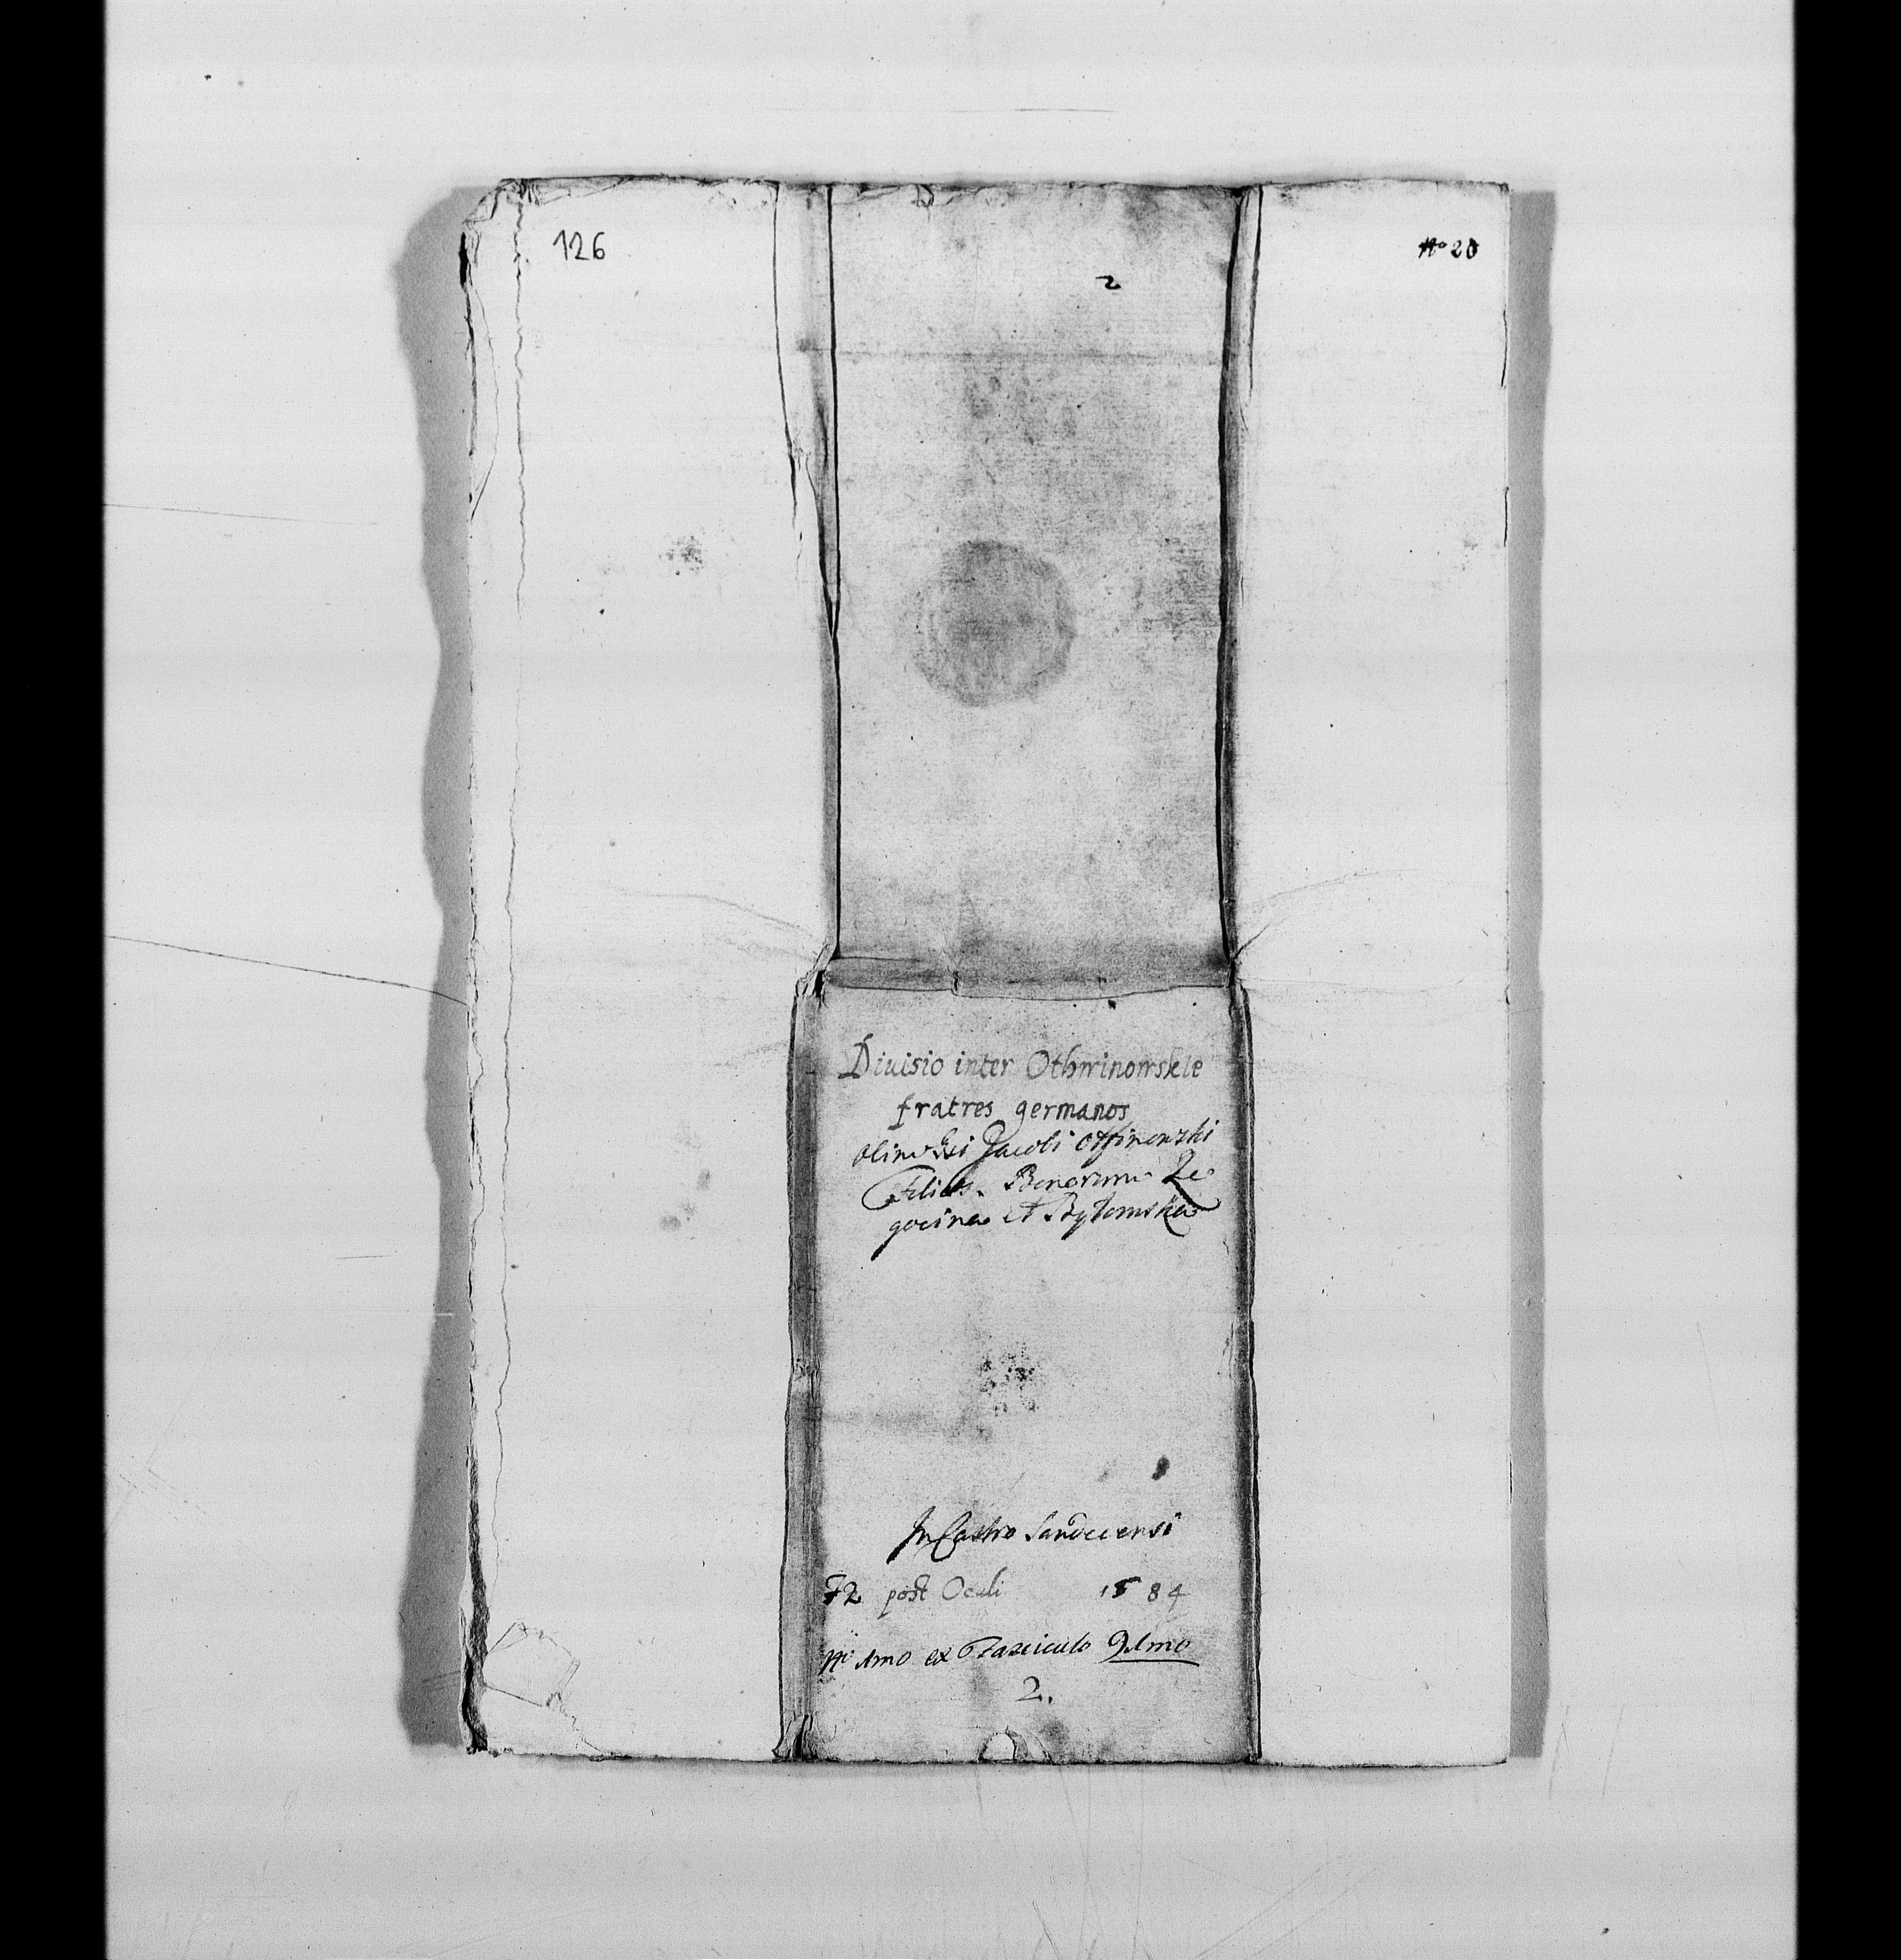 126
No 20
2
Diuisio inter Othwinowskie
fratres germanos
olim Jacobi Otfinowski
Filios. Bonorum Ze
gocina et Bytomska
In Castro Sandecensi
F2 post Oculi 1584
No 1mo ex Fasciculo
2.